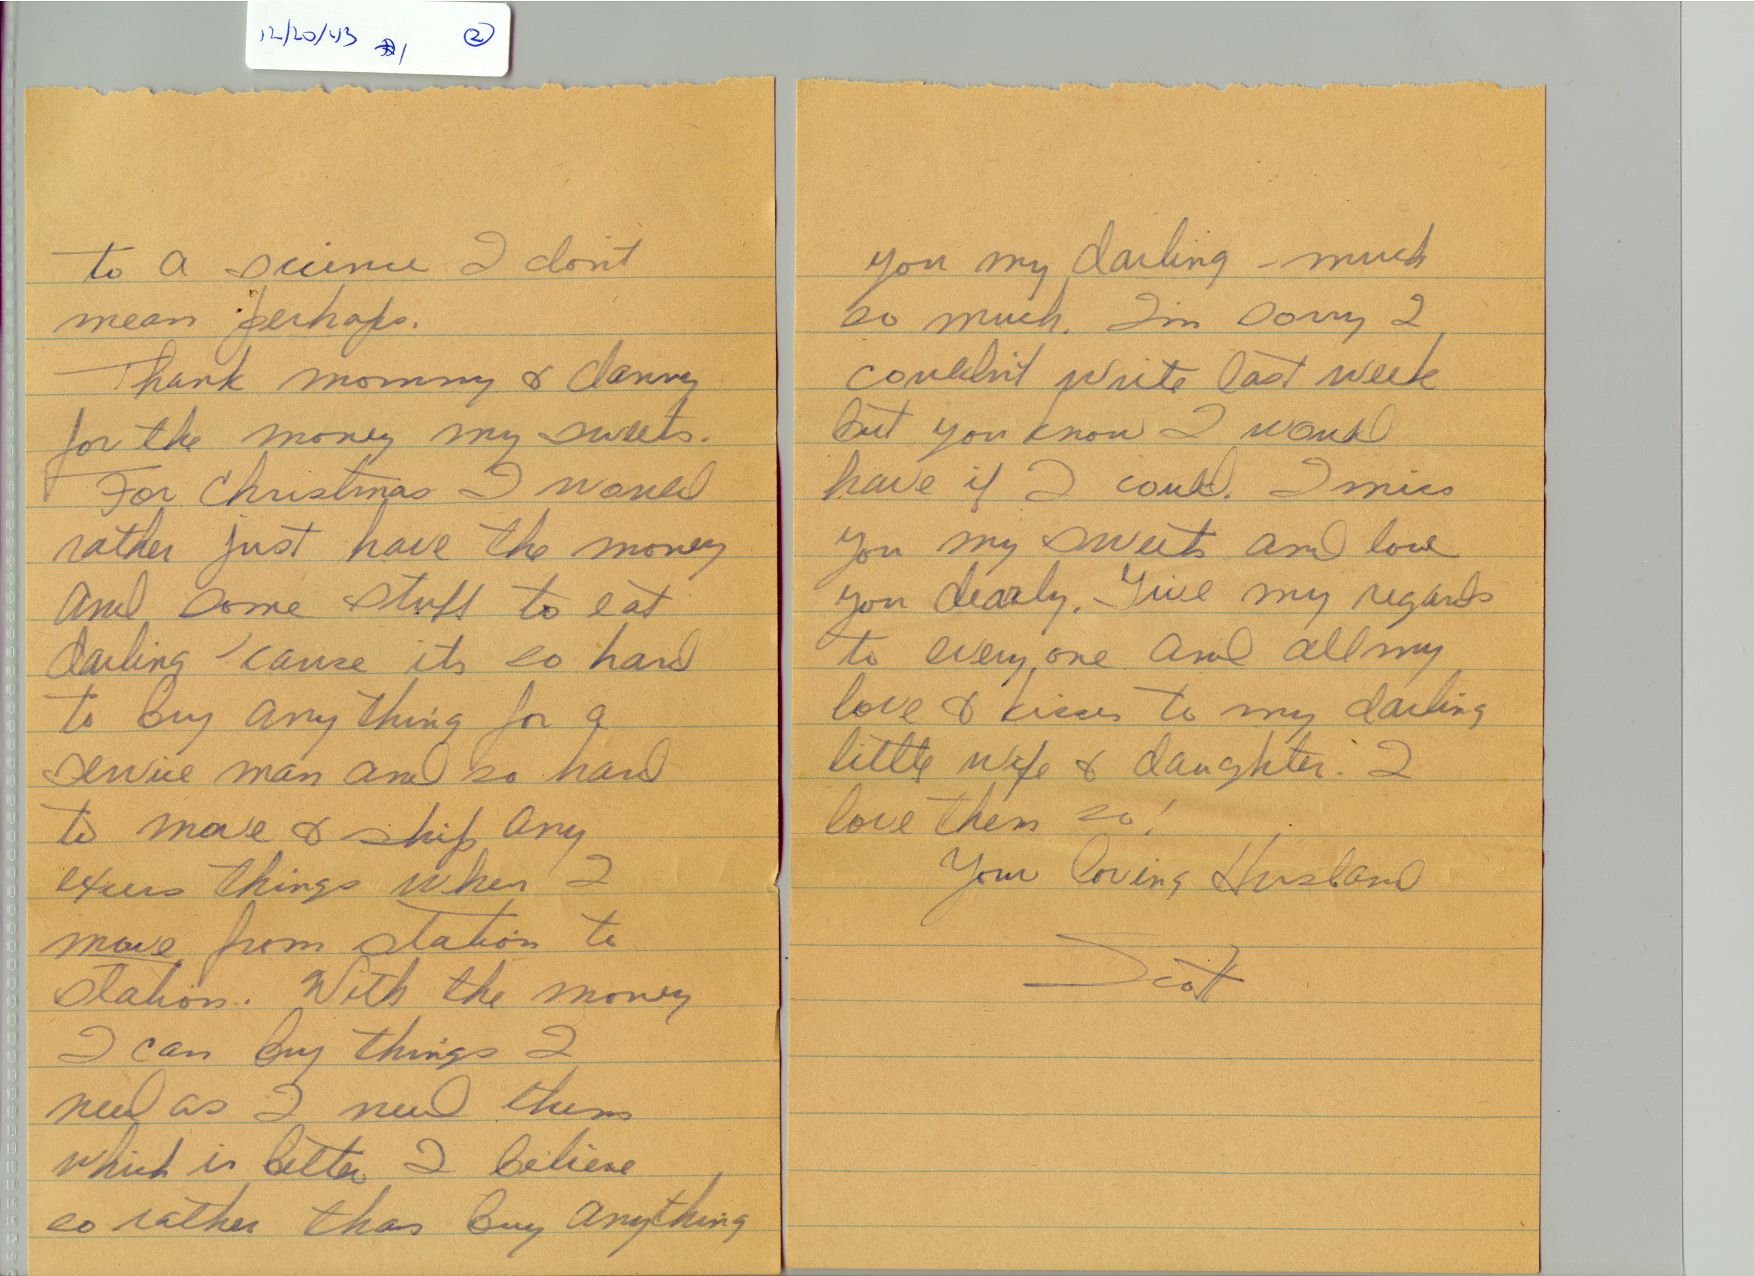 12/20/43 #1 2
to a science I don't
mean perhaps.
Thank mommy & danny
for the money my sweets.
For Christmas I would
rather just have the money
and some stuff to eat
darling 'cause its so hard
to buy anything for a
service man and so hard
to move & ship any
excess things when I
move from station to
station. With the money
I can buy things I
need as I need them
which is better I believe
so rather than buy anything
you my darling - much
so much. I'm sorry I
couldn't write last week
but you know I would
have if I could. I miss
you my sweets and love
you dearly. Give my regards
to everyone and all my
love & kisses to my darling
little wife & daughter. I
love them so!
Your loving Husband
Scott